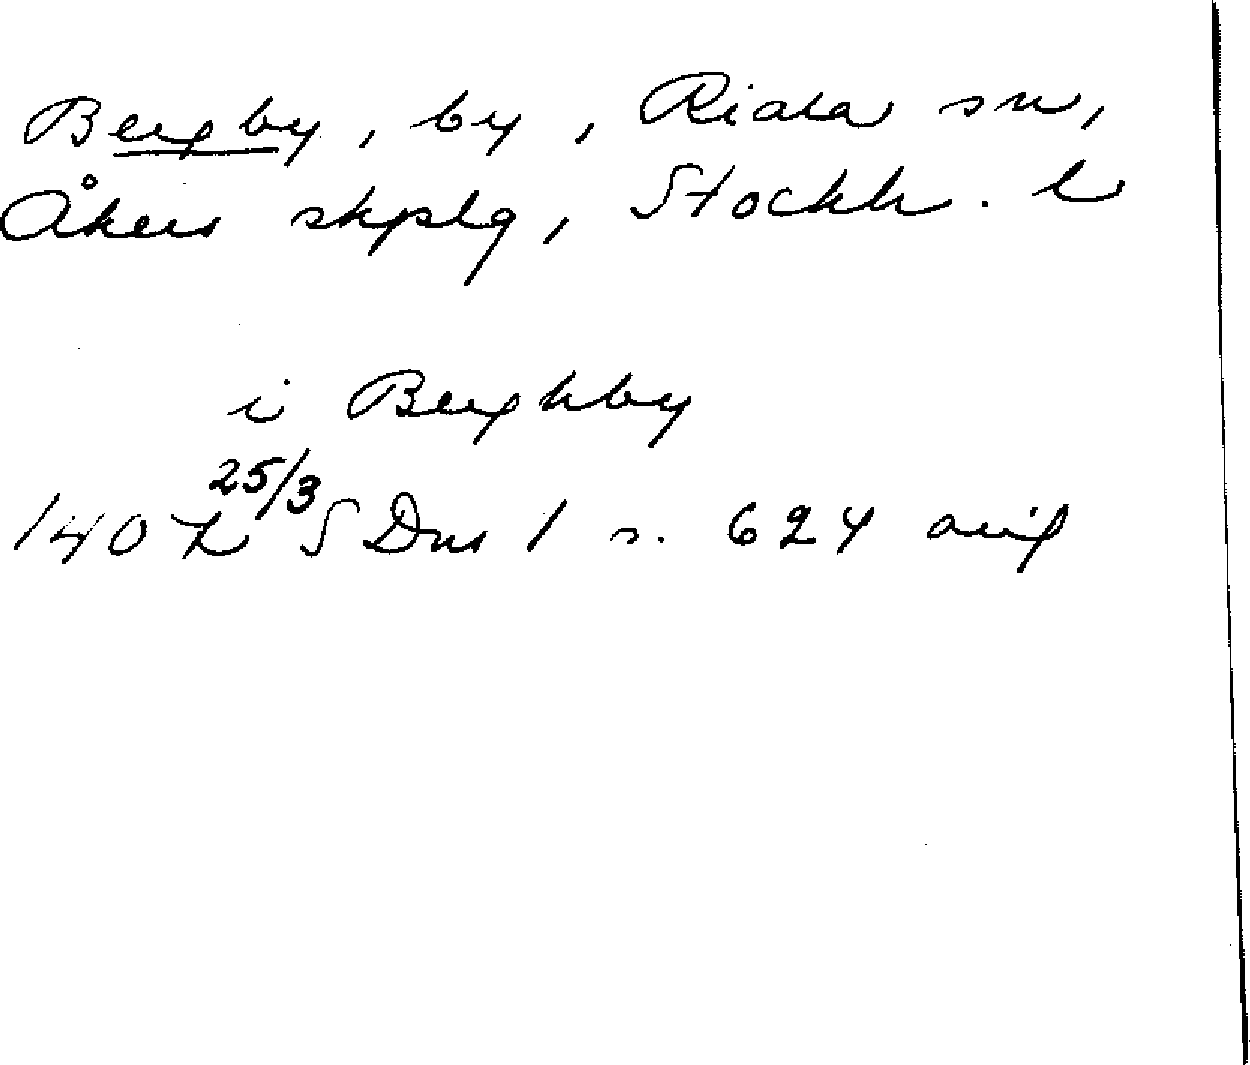 Bergby, by, Riala sn,
Åkers skplg, Stockh. l
i Berghby
25/3
1407 SDns 1 s. 624 orig